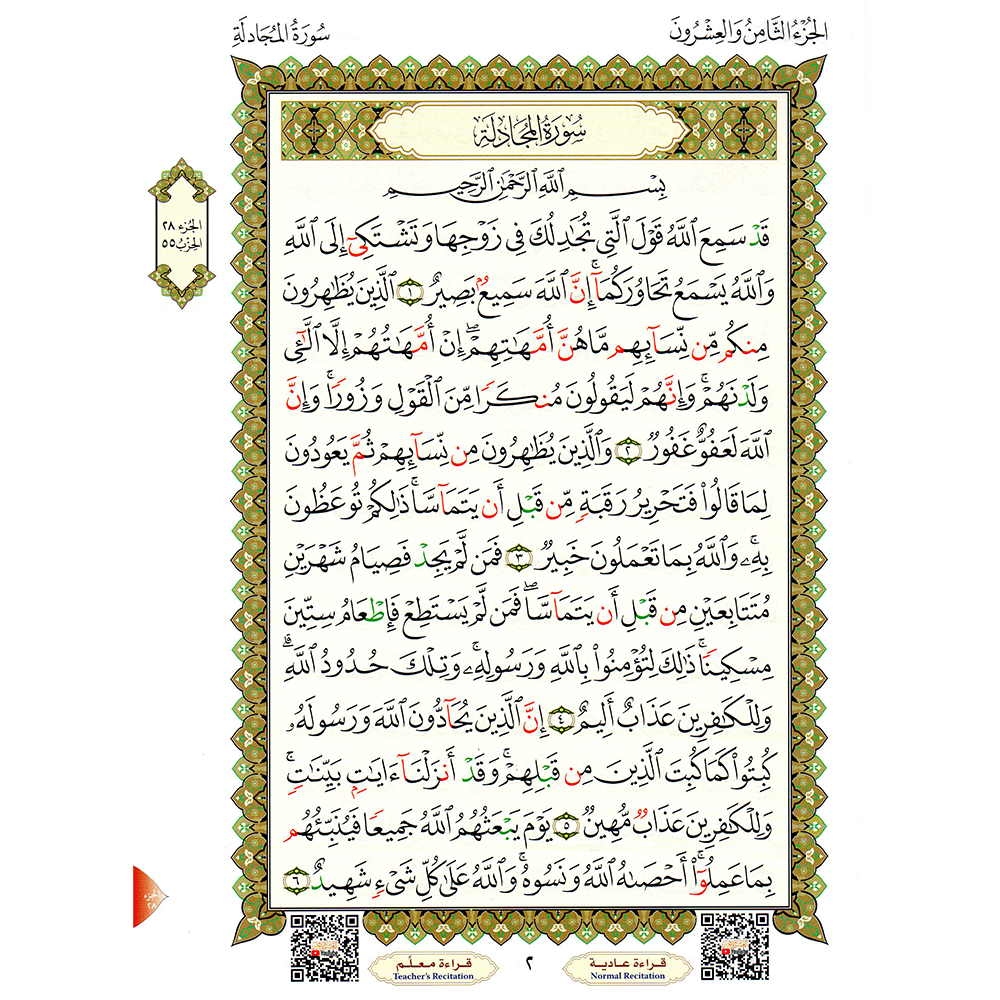 الجُزْءُ الثَّامِنُ وَالعِشْرُونَ
سُورَةُ المُجَادلَةِ
سُورَةُ المُجَادلَةِ
بِسْمِ ٱللَّهِ ٱلرَّحْمَٰنِ ٱلرَّحِيمِ
قَدْ سَمِعَ ٱللَّهُ قَوْلَ ٱلَّتِي تُجَٰدِلُكَ فِي زَوْجِهَا وَتَشْتَكِيٓ إِلَى ٱللَّهِ
وَٱللَّهُ يَسْمَعُ تَحَاوُرَكُمَآۚ إِنَّ ٱللَّهَ سَمِيعُۢ بَصِيرٌ ١ ٱلَّذِينَ يُظَٰهِرُونَ
مِنكُم مِّن نِّسَآئِهِم مَّا هُنَّ أُمَّهَٰتِهِمْۖ إِنْ أُمَّهَٰتُهُمْ إِلَّا ٱلَّٰٓـِٔي
وَلَدْنَهُمْۚ وَإِنَّهُمْ لَيَقُولُونَ مُنكَرًا مِّنَ ٱلْقَوْلِ وَزُورًاۚ وَإِنَّ
ٱللَّهَ لَعَفُوٌّ غَفُورٌ ٢ وَٱلَّذِينَ يُظَٰهِرُونَ مِن نِّسَآئِهِمْ ثُمَّ يَعُودُونَ
لِمَا قَالُوا۟ فَتَحْرِيرُ رَقَبَةٍ مِّن قَبْلِ أَن يَتَمَآسَّاۚ ذَٰلِكُمْ تُوعَظُونَ
بِهِۦۚ وَٱللَّهُ بِمَا تَعْمَلُونَ خَبِيرٌ ٣ فَمَن لَّمْ يَجِدْ فَصِيَامُ شَهْرَيْنِ
مُتَتَابِعَيْنِ مِن قَبْلِ أَن يَتَمَآسَّاۖ فَمَن لَّمْ يَسْتَطِعْ فَإِطْعَامُ سِتِّينَ
مِسْكِينًاۚ ذَٰلِكَ لِتُؤْمِنُوا۟ بِٱللَّهِ وَرَسُولِهِۦۚ وَتِلْكَ حُدُودُ ٱللَّهِۗ
وَلِلْكَٰفِرِينَ عَذَابٌ أَلِيمٌ ٤ إِنَّ ٱلَّذِينَ يُحَآدُّونَ ٱللَّهَ وَرَسُولَهُۥ
كُبِتُوا۟ كَمَا كُبِتَ ٱلَّذِينَ مِن قَبْلِهِمْۚ وَقَدْ أَنزَلْنَآ ءَايَٰتٍۭ بَيِّنَٰتٍۚ
وَلِلْكَٰفِرِينَ عَذَابٌ مُّهِينٌ ٥ يَوْمَ يَبْعَثُهُمُ ٱللَّهُ جَمِيعًا فَيُنَبِّئُهُم
بِمَا عَمِلُوٓا۟ۚ أَحْصَىٰهُ ٱللَّهُ وَنَسُوهُۚ وَٱللَّهُ عَلَىٰ كُلِّ شَىْءٍ شَهِيدٌ ٦
الجُزء ٢٨
الحِزْبُ ٥٥
الجزء
٢٨
قراءة عادية
Normal Recitation
٢
قراءة معلّم
Teacher's Recitation